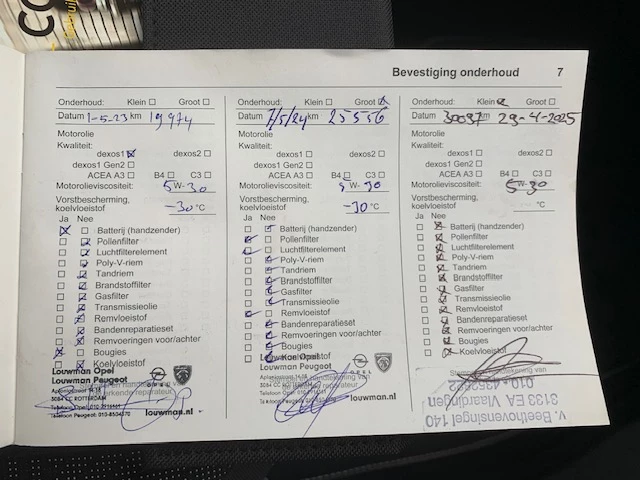 CO
Bevestiging onderhoud 7
Onderhoud: Klein ☐ Groot ☐
Datum 1-5-23 km 19974
Motorolie
Kwaliteit:
dexos1 ☒ dexos2 ☐
dexos1 Gen2 ☐
ACEA A3 ☐ B4 ☐ C3 ☐
Motorolieviscositeit: 5W-30
Vorstbescherming,
koelvloeistof -30 °C
Ja Nee
☒ ☐ Batterij (handzender)
☐ ☒ Pollenfilter
☐ ☒ Luchtfilterelement
☐ ☒ Poly-V-riem
☐ ☒ Tandriem
☐ ☒ Brandstoffilter
☐ ☒ Gasfilter
☐ ☒ Transmissieolie
☐ ☒ Remvloeistof
☐ ☒ Bandenreparatieset
☐ ☒ Remvoeringen voor/achter
☒ ☐ Bougies
☐ ☒ Koelvloeistof
Louwman Opel
Louwman Peugeot
3084 CC ROTTERDAM
Telefoon Peugeot: 010-8504270
louwman.nl
Onderhoud: Klein ☐ Groot ☒
Datum 7/5/24 km 25556
Motorolie
Kwaliteit:
dexos1 ☐ dexos2 ☐
dexos1 Gen2 ☐
ACEA A3 ☐ B4 ☐ C3 ☐
Motorolieviscositeit: 5W-30
Vorstbescherming,
koelvloeistof -30 °C
Ja Nee
☐ ☒ Batterij (handzender)
☒ ☐ Pollenfilter
☒ ☐ Luchtfilterelement
☐ ☒ Poly-V-riem
☐ ☒ Tandriem
☐ ☒ Brandstoffilter
☐ ☒ Gasfilter
☐ ☒ Transmissieolie
☒ ☐ Remvloeistof
☐ ☒ Bandenreparatieset
☐ ☒ Remvoeringen voor/achter
☐ ☒ Bougies
☐ ☒ Koelvloeistof
Louwman Opel
Louwman Peugeot
3084 CC ROTTERDAM
louwman.nl
Onderhoud: Klein ☒ Groot ☐
Datum 30097 29-4-2025
Motorolie
Kwaliteit:
dexos1 ☐ dexos2 ☐
dexos1 Gen2 ☐
ACEA A3 ☐ B4 ☐ C3 ☐
Motorolieviscositeit: 5W-30
Vorstbescherming,
koelvloeistof °C
Ja Nee
☐ ☒ Batterij (handzender)
☐ ☒ Pollenfilter
☐ ☒ Luchtfilterelement
☐ ☒ Poly-V-riem
☐ ☒ Tandriem
☐ ☒ Brandstoffilter
☐ ☒ Gasfilter
☐ ☒ Transmissieolie
☐ ☒ Remvloeistof
☐ ☒ Bandenreparatieset
☐ ☒ Remvoeringen voor/achter
☐ ☒ Bougies
☐ ☒ Koelvloeistof
v. Beethovensingel 140
3133 EA Vlaardingen